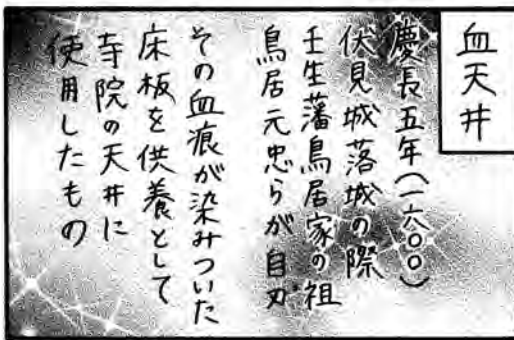 血天井
慶長五年(一六〇〇)
伏見城落城の際
壬生藩鳥居家の祖
鳥居元忠らが自刃
その血痕が染みついた
床板を供養として
寺院の天井に
使用したもの